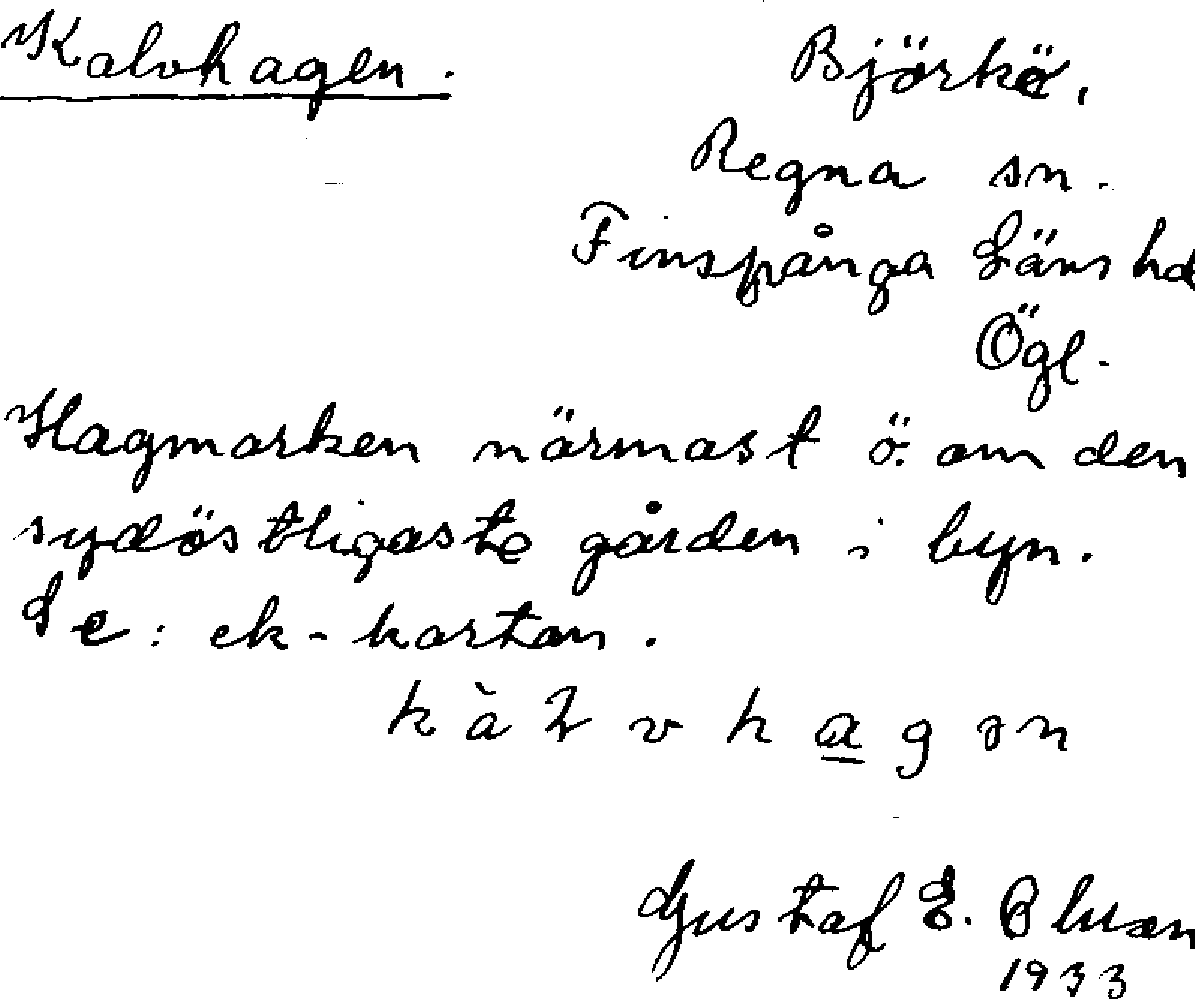 Kalvhagen.
Björkö,
Regna sn.
Finspånga Läns hd
Ögl.
Hagmarken närmast ö. om den
sydöstligaste gården i byn.
Se: ek-kartan.
k à ɫ v h a g ə n
Gustaf E.
1933